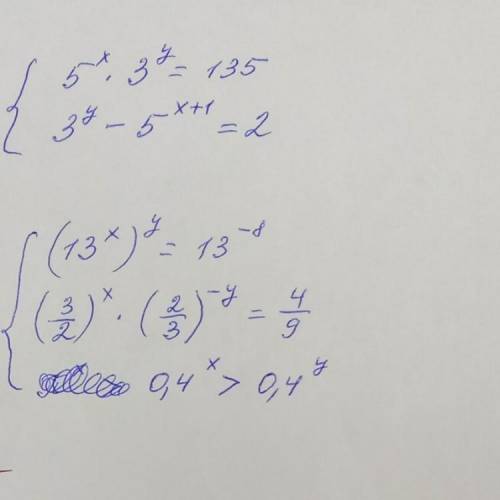 5^x · 3^y = 135
3^y − 5^{x+1} = 2
(13^x)^y = 13^{−8}
(3/2)^x · (2/3)^{−y} = 4/9
0,4^x > 0,4^y